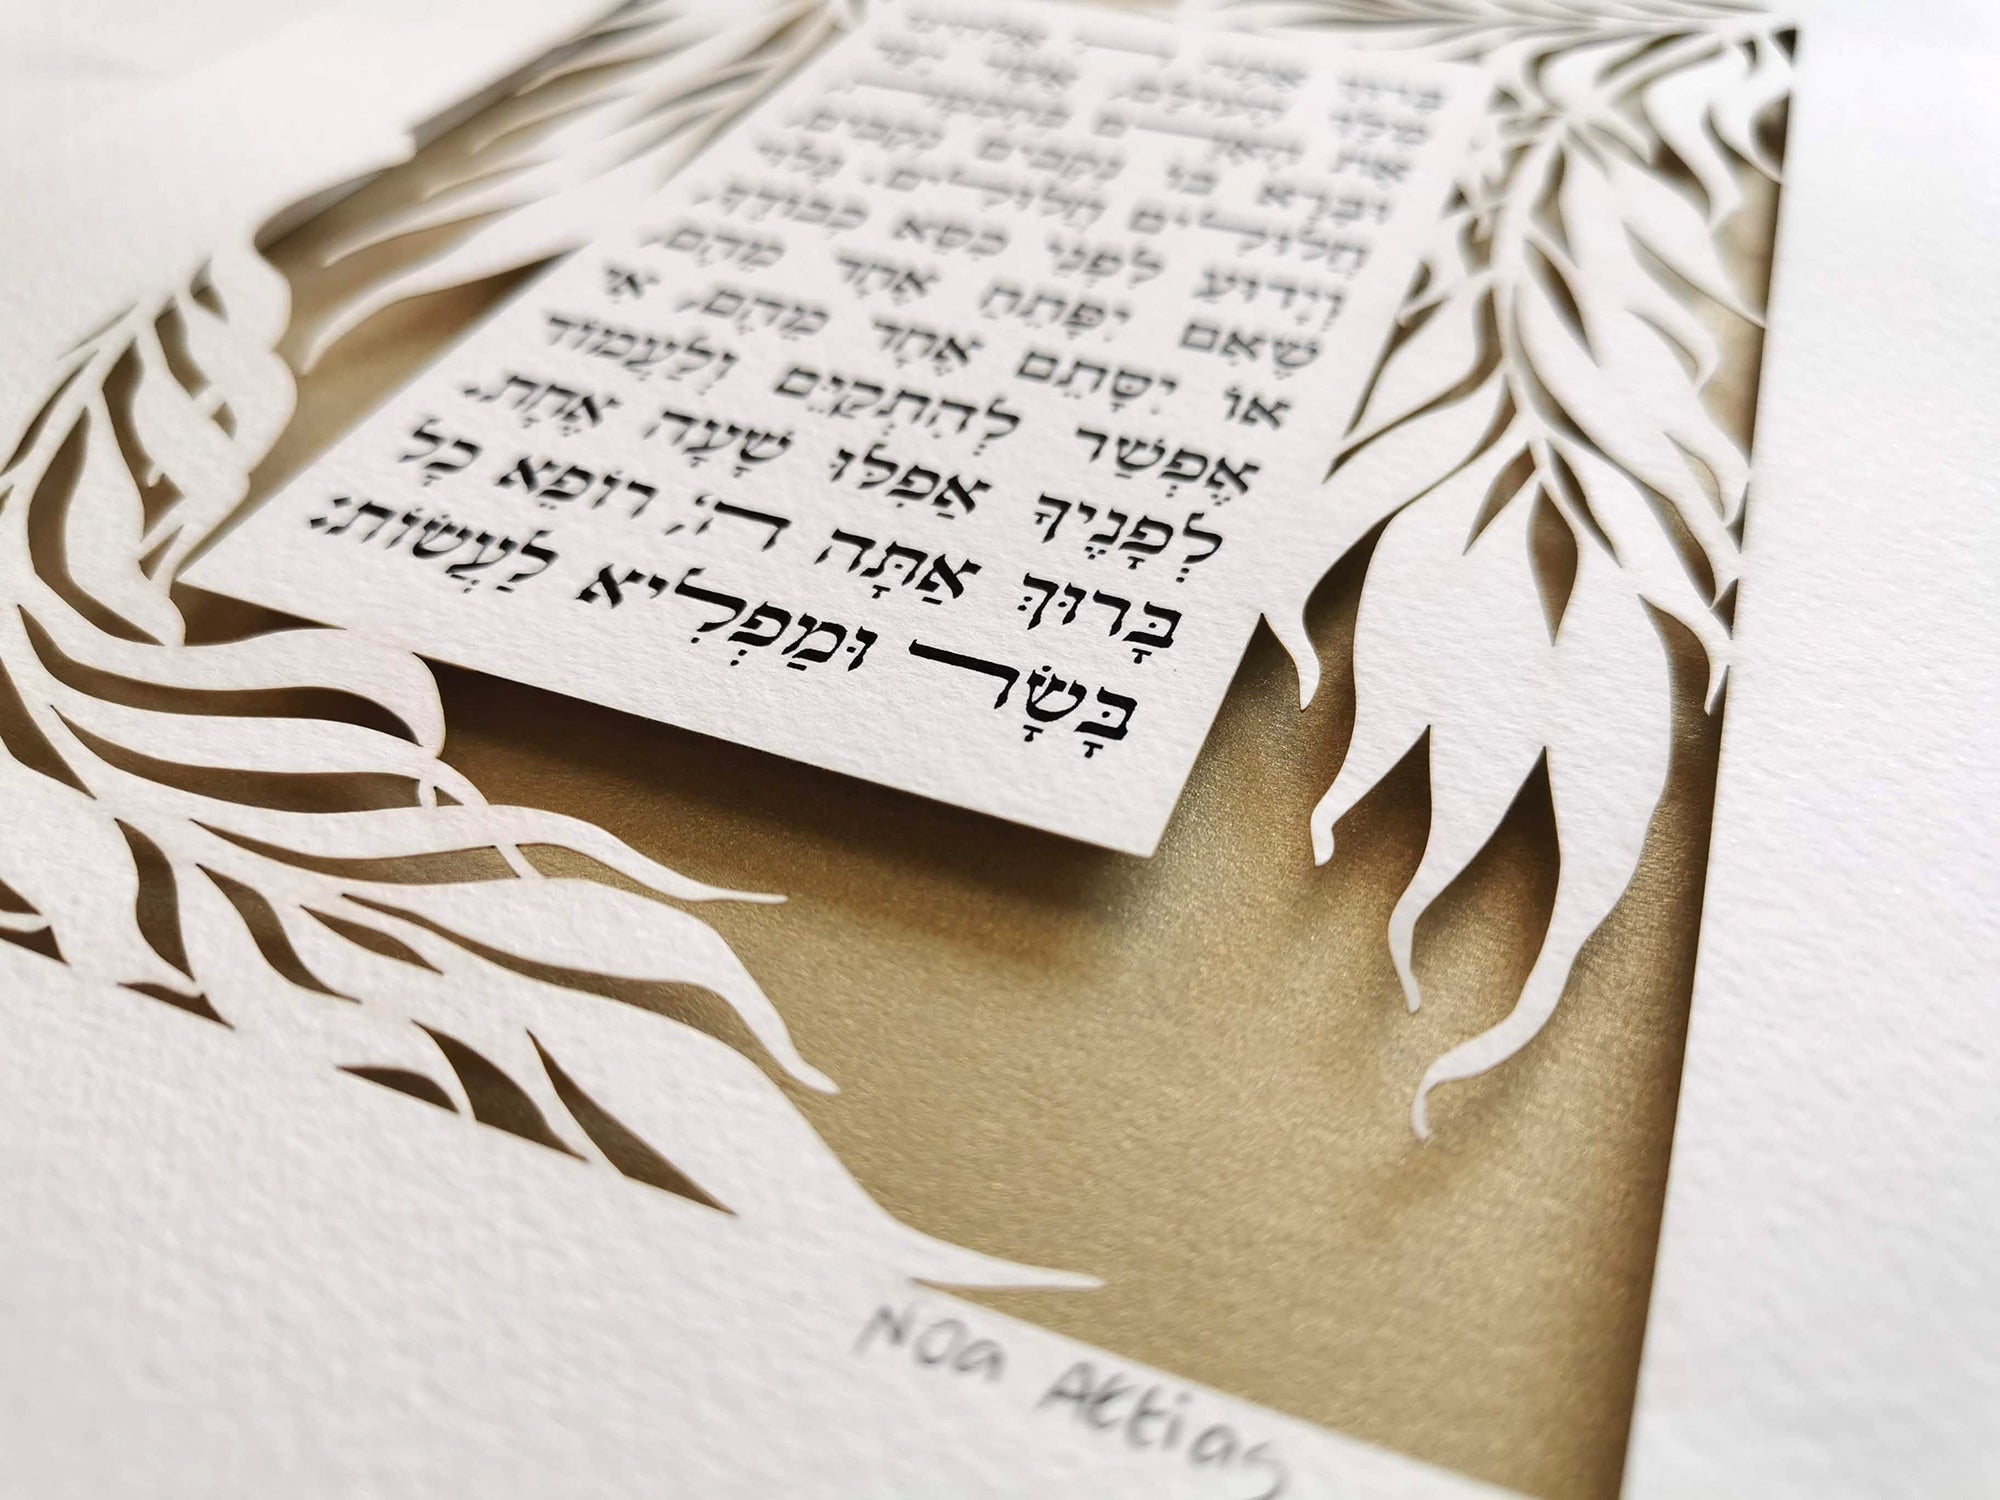 אַתָּה
הָעוֹלָם, אֲשֶׁר יָצַר
אֶת הָאָדָם בְּחָכְמָה,
וּבָרָא בוֹ נְקָבִים נְקָבִים,
חֲלוּלִים חֲלוּלִים. גָּלוּי
וְיָדוּעַ לִפְנֵי כִסֵּא כְבוֹדֶךָ,
שֶׁאִם יִפָּתֵחַ אֶחָד מֵהֶם,
אוֹ יִסָּתֵם אֶחָד מֵהֶם, אִי
אֶפְשַׁר לְהִתְקַיֵּם וְלַעֲמוֹד
לְפָנֶיךָ אַפִלּוּ שָׁעָה אֶחָת.
בָּרוּךְ אַתָּה ה', רוֹפֵא כָל
בָּשָׂר וּמַפְלִיא לַעֲשׂוֹת:
Noa Attias